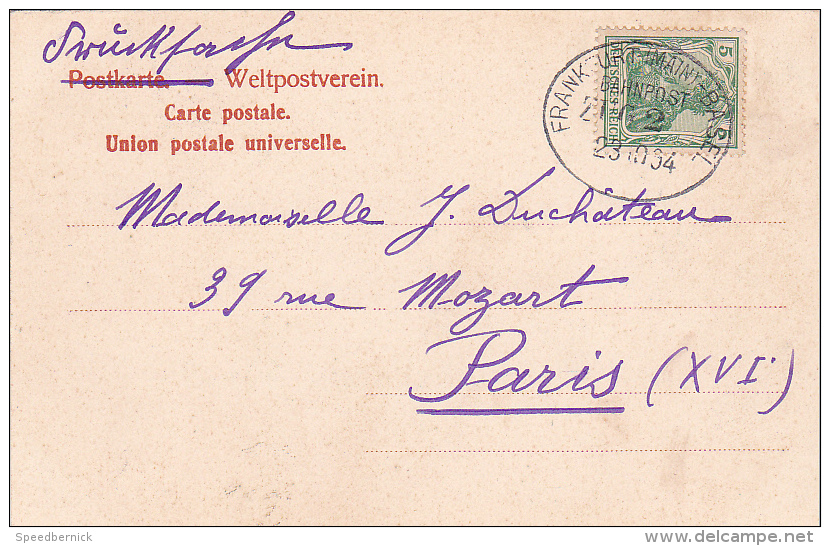 Drucksache
Postkarte. Weltpostverein.
Carte postale.
Union postale universelle.
5
DEUTSCHES REICH
FRANKFURT (MAIN)-BASEL
BAHNPOST
2
23 10 04
Mademoiselle J. Duchâteau
39 rue Mozart
Paris (XVI.)
Speedbernick
delcampe.net